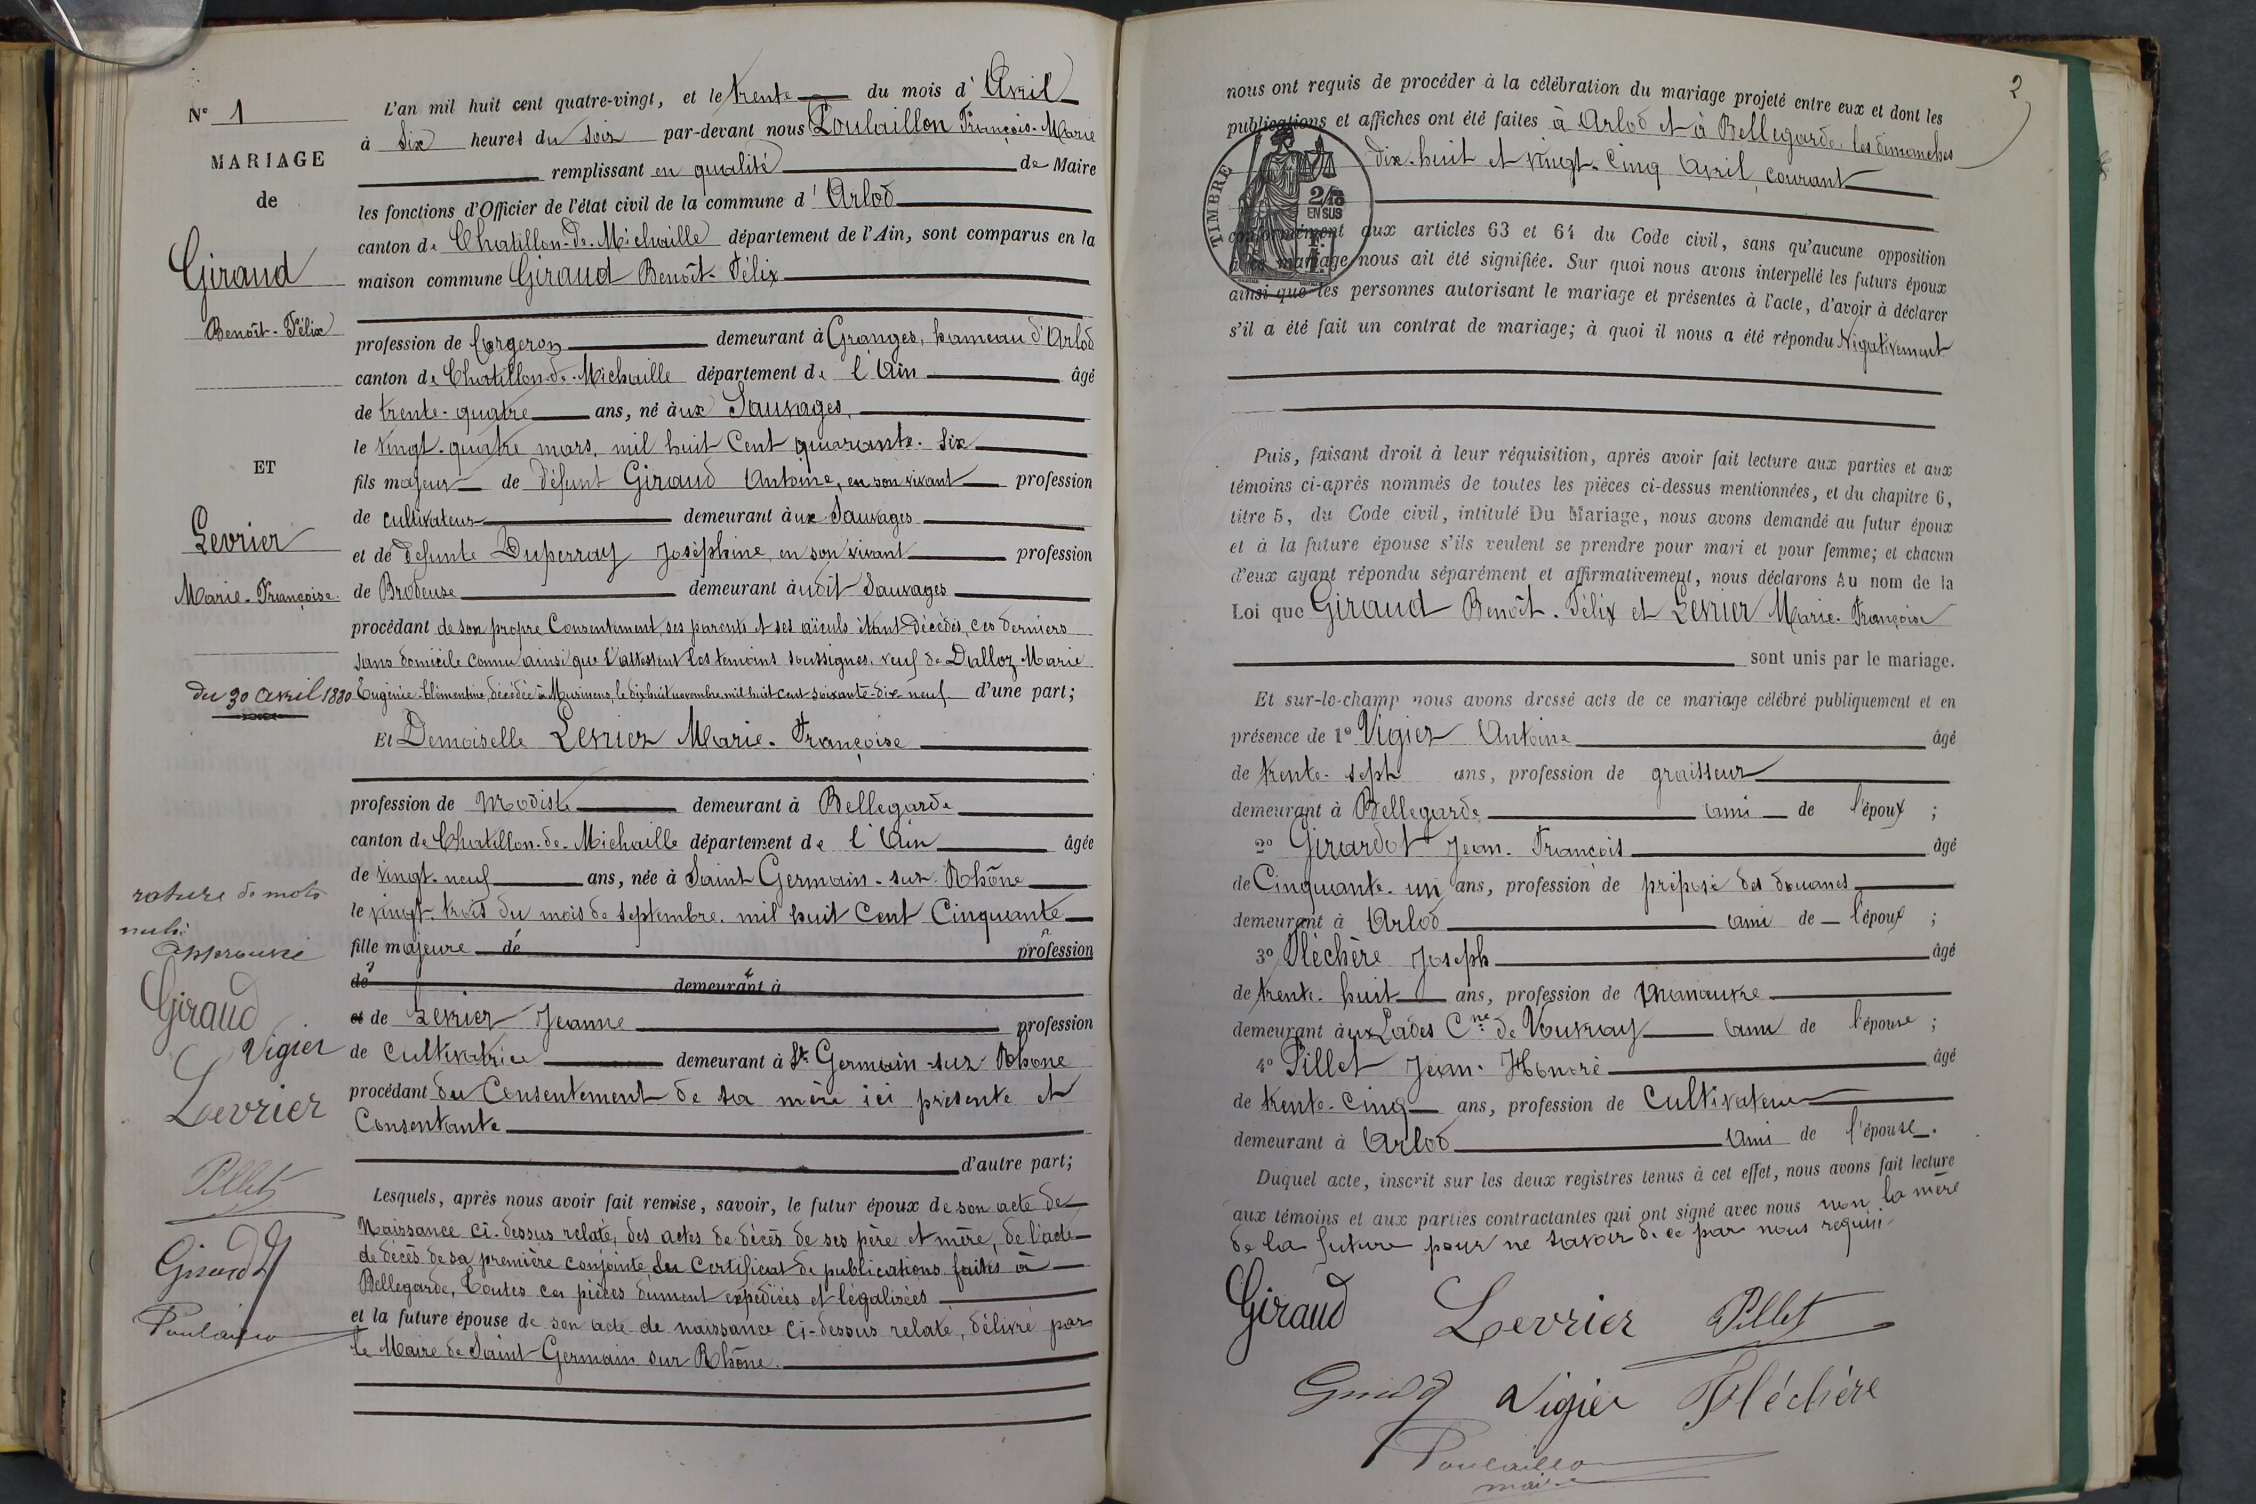 N° 1
MARIAGE
de
Giraud
Benoît-Félix
ET
Levrier
Marie-Françoise.
du 30 avril 1880
rature de mots
nuls
approuvé
Giraud
Vigier
Levrier
Pillet
Girardot
Poulaillon
L'an mil huit cent quatre-vingt, et le trente du mois d'Avril
à six heures du soir par-devant nous Poulaillon François-Marie
remplissant en qualité de Maire
les fonctions d'Officier de l'état civil de la commune d'Arlod
canton de Chatillon-de-Michaille département de l'Ain, sont comparus en la
maison commune Giraud Benoît-Félix
profession de forgeron demeurant à Granges, hameau d'Arlod
canton de Chatillon-de-Michaille département de l'Ain âgé
de trente-quatre ans, né àux Sauvages,
le vingt-quatre mars, mil huit Cent quarante-six
fils majeur de défunt Giraud Antoine, en son vivant profession
de cultivateur demeurant àux Sauvages
et de défunte Duperray Joséphine en son vivant profession
de Brodeuse demeurant àudit Sauvages
procédant de son propre Consentement, ses parents et ses aïeuls étant décédés, ces derniers
sans domicile connu ainsi que l'attestent les temoins soussignés, veuf de Dalloz Marie
Eugénie-Clémentine, décédée à Musinens, le dix-huit novembre mil huit-cent-soixante-dix-neuf d'une part;
Et Demoiselle Levrier Marie-Françoise
profession de modiste demeurant à Bellegarde
canton de Chatillon-de-Michaille département de l'Ain âgée
de vingt-neuf ans, née à Saint Germain-sur-Rhône
le vingt-trois du mois de septembre mil huit Cent Cinquante
fille majeure de profession
de demeurant à
et de Levrier Jeanne profession
de Cultivatrice demeurant à St Germain-sur Rhône
procédant du Consentement de sa mère ici présente et
Consentante
d'autre part;
Lesquels, après nous avoir fait remise, savoir, le futur époux de son acte de
Naissance ci-dessus relaté, des actes de décès de ses père et mère, de l'acte
de décès de sa première conjointe, du Certificat de publications faites à
Bellegarde, toutes ces pièces dûment expédiées et légalisées
et la future épouse de son acte de naissance ci-dessus relaté, délivré par
le Maire de Saint-Germain sur Rhône.
2
nous ont requis de procéder à la célébration du mariage projeté entre eux et dont les
publications et affiches ont été faites à Arlod et à Bellegarde, les dimanches
dix-huit et vingt-cinq Avril, courant
TIMBRE
2/10
EN SUS
conformément aux articles 63 et 64 du Code civil, sans qu'aucune opposition
à ce mariage nous ait été signifiée. Sur quoi nous avons interpellé les futurs époux
ainsi que les personnes autorisant le mariage et présentes à l'acte, d'avoir à déclarer
s'il a été fait un contrat de mariage; à quoi il nous a été répondu Négativement
Puis, faisant droit à leur réquisition, après avoir fait lecture aux parties et aux
témoins ci-après nommés de toutes les pièces ci-dessus mentionnées, et du chapitre 6,
titre 5, du Code civil, intitulé Du Mariage, nous avons demandé au futur époux
et à la future épouse s'ils veulent se prendre pour mari et pour femme; et chacun
d'eux ayant répondu séparément et affirmativement, nous déclarons Au nom de la
Loi que Giraud Benoît-Félix et Levrier Marie-Françoise
sont unis par le mariage.
Et sur-le-champ nous avons dressé acte de ce mariage célébré publiquement et en
présence de 1° Vigier Antoine âgé
de trente-sept ans, profession de graisseur
demeurant à Bellegarde ami de l'époux ;
2° Girardot Jean-François âgé
de Cinquante-un ans, profession de préposé des douanes
demeurant à Arlod ami de l'époux ;
3° Fléchère Joseph âgé
de trente-huit ans, profession de manœuvre
demeurant àux Lades Cne de Vouvray ami de l'épouse ;
4° Pillet Jean-Honoré âgé
de trente-cinq ans, profession de Cultivateur
demeurant à Arlod ami de l'épouse.
Duquel acte, inscrit sur les deux registres tenus à cet effet, nous avons fait lecture
aux témoins et aux parties contractantes qui ont signé avec nous non la mère
de la future pour ne savoir de ce par nous requise
Giraud Levrier Pillet
Girardot Vigier Fléchère
Poulaillon
maire